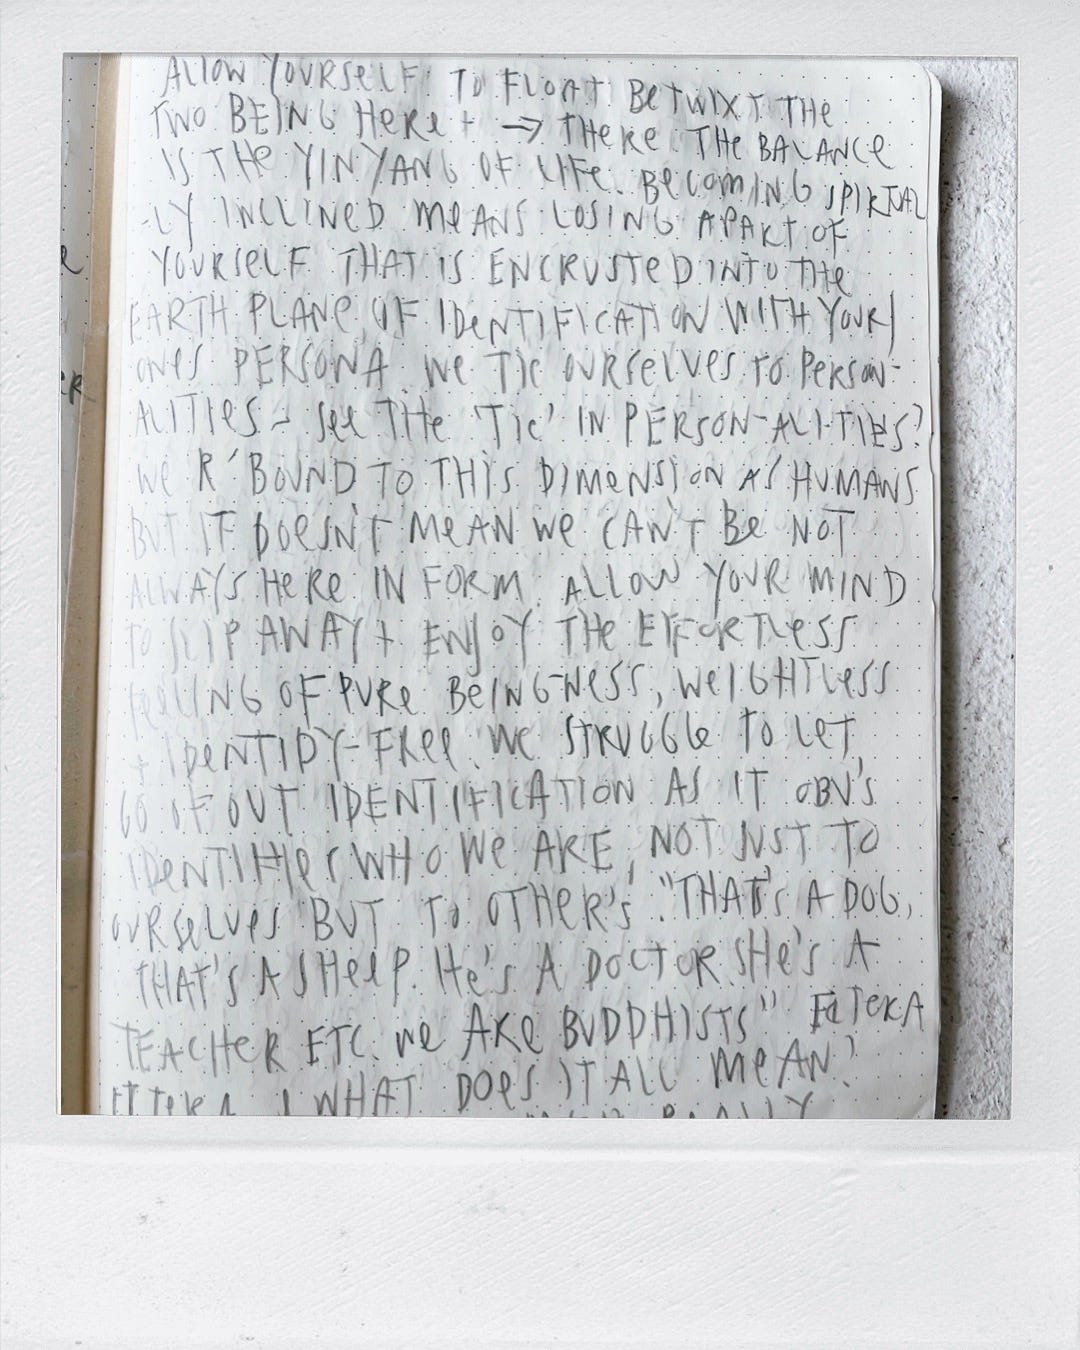 ALLOW YOURSELF TO FLOAT BETWIXT THE
TWO BEING HERE + → THERE THE BALANCE
IS THE YIN YANG OF LIFE. BECOMING SPIRTUAL
-LY INCLINED MEANS LOSING A PART OF
YOURSELF THAT IS ENCRUSTED INTO THE
EARTH PLANE OF IDENTIFICATION WITH YOUR/
ONES PERSONA. WE TIE OURSELVES TO PERSON-
ALITIES - SEE THE 'TIE' IN PERSON-ALI-TIES?
WE R 'BOUND TO THIS DIMENSION AS HUMANS
BUT IT DOESN'T MEAN WE CAN'T BE NOT
ALWAYS HERE IN FORM. ALLOW YOUR MIND
TO SLIP AWAY + ENJOY THE EFFORTLESS
FEELING OF PURE BEING-NESS, WEIGHTLESS
+ IDENTIDY-FREE. WE STRUGGLE TO LET
GO OF OUT IDENTIFICATION AS IT OBV'S
IDENTIFIES WHO WE ARE, NOT JUST TO
OURSELVES BUT TO OTHER'S. "THAT'S A DOG,
THAT'S A SHEEP. HE'S A DOCTOR. SHE'S A
TEACHER ETC. WE ARE BUDDHISTS"
WHAT DOES IT ALL MEAN?
REALLY